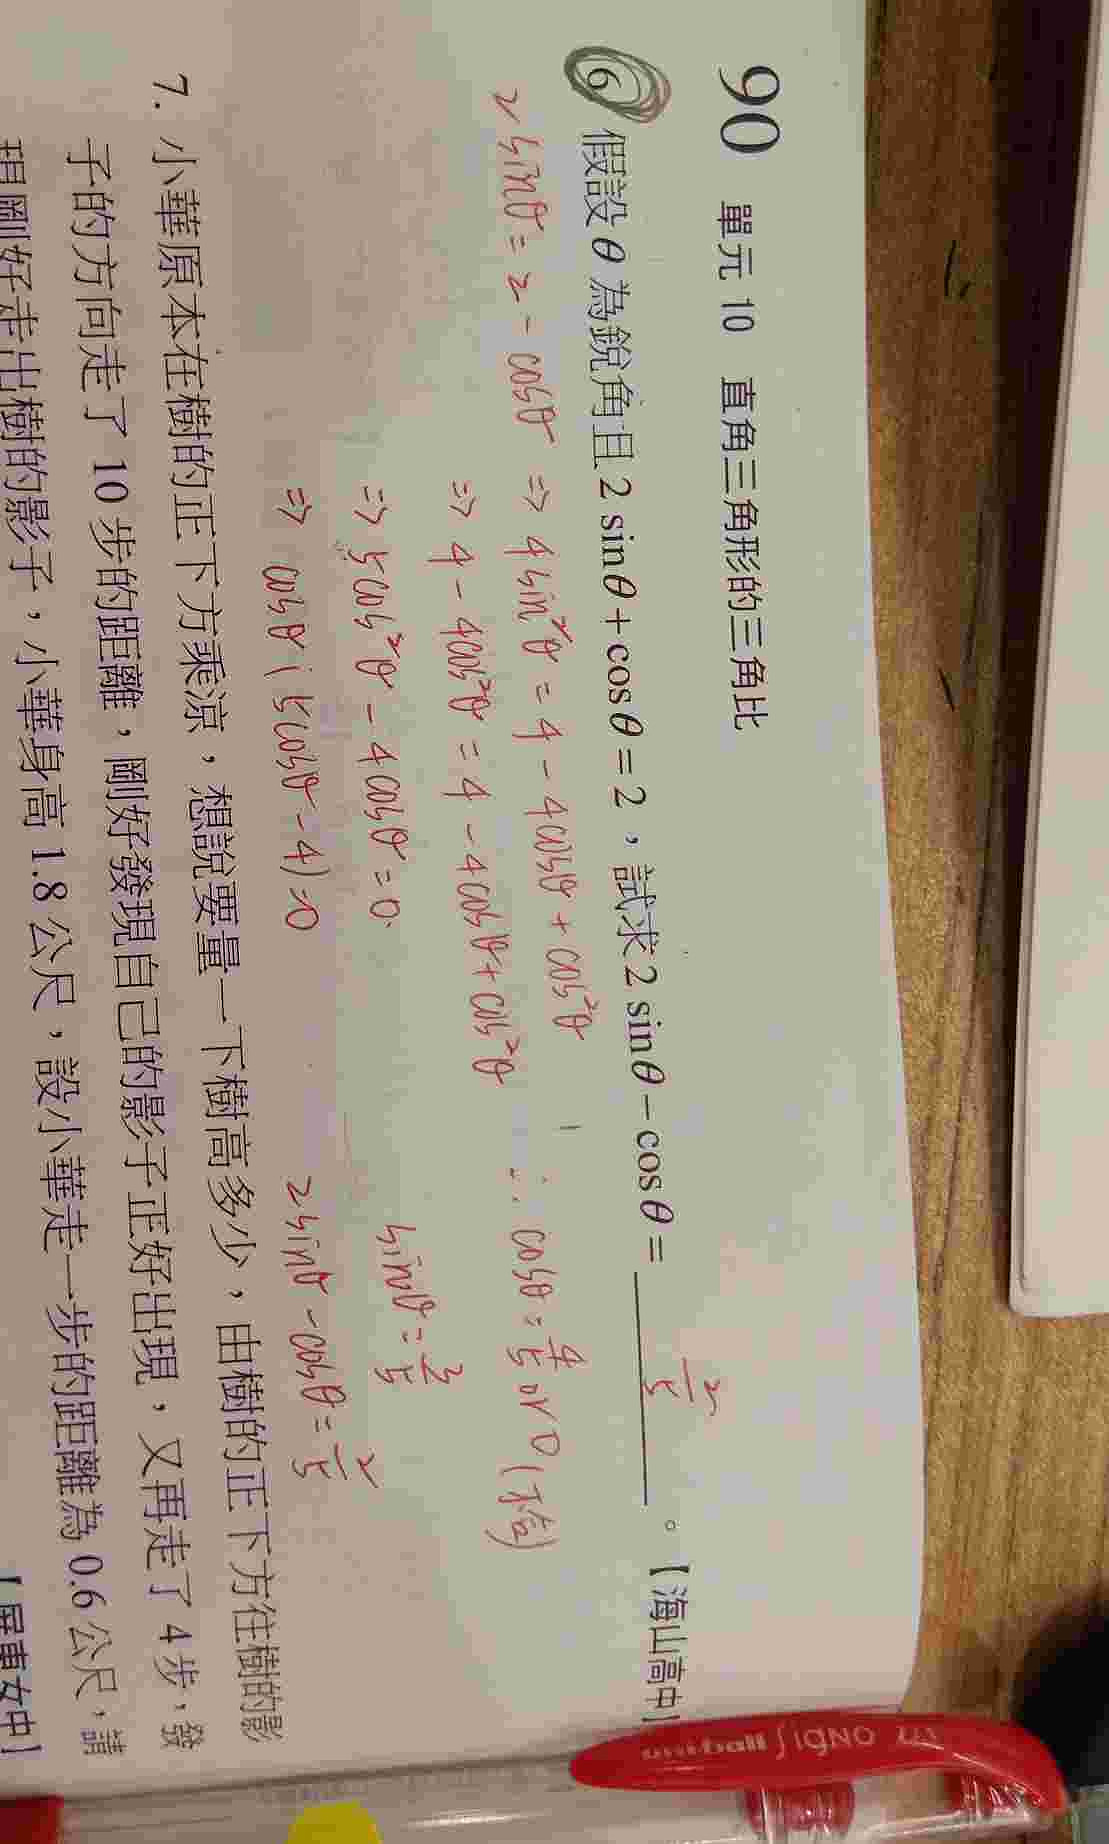 90 單元 10 直角三角形的三角比
6 假設 θ 為銳角且 2 sinθ + cosθ = 2，試求 2 sinθ − cosθ = 2/5 。【海山高中】
2sinθ = 2 − cosθ ⇒ 4sin²θ = 4 − 4cosθ + cos²θ
⇒ 4 − 4cos²θ = 4 − 4cosθ + cos²θ
⇒ 5cos²θ − 4cosθ = 0
⇒ cosθ(5cosθ − 4) = 0
∴ cosθ = 4/5 or 0 (不合)
sinθ = 3/5
2sinθ − cosθ = 2/5
7. 小華原本在樹的正下方乘涼，想說要量一下樹高多少，由樹的正下方往樹的影
子的方向走了 10 步的距離，剛好發現自己的影子正好出現，又再走了 4 步，發
現剛好走出樹的影子，小華身高 1.8 公尺，設小華走一步的距離為 0.6 公尺，請
【屏東女中】
uni-ball SigNO